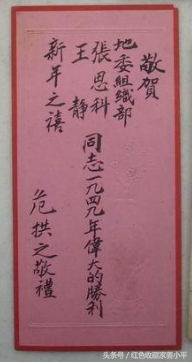 敬賀
地委組織部
張思科
王靜
同志一九四九年偉大的勝利
新年之禧
危拱之敬禮
头条号／红色收藏家曾小平